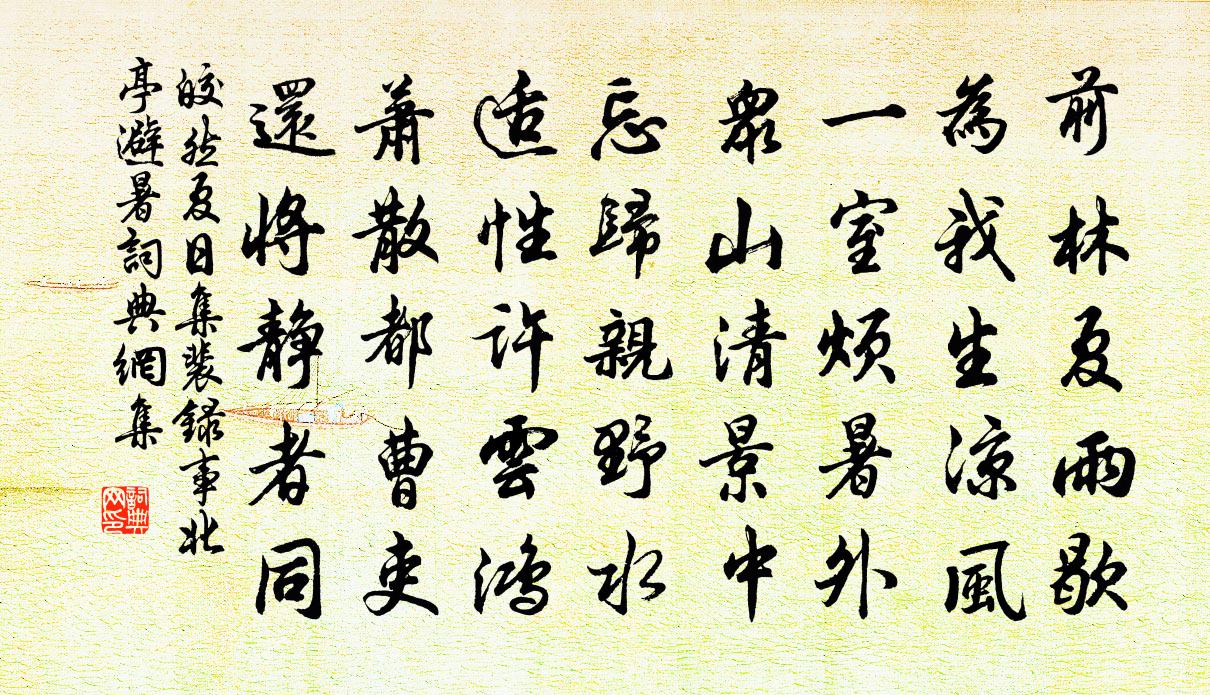 前林夏雨歇
為我生涼風
一室煩暑外
眾山清景中
忘歸親野水
适性許雲鴻
蕭散都曹吏
還將靜者同
皎然夏日集裴錄事北
亭避暑詞典網集
詞典
网印